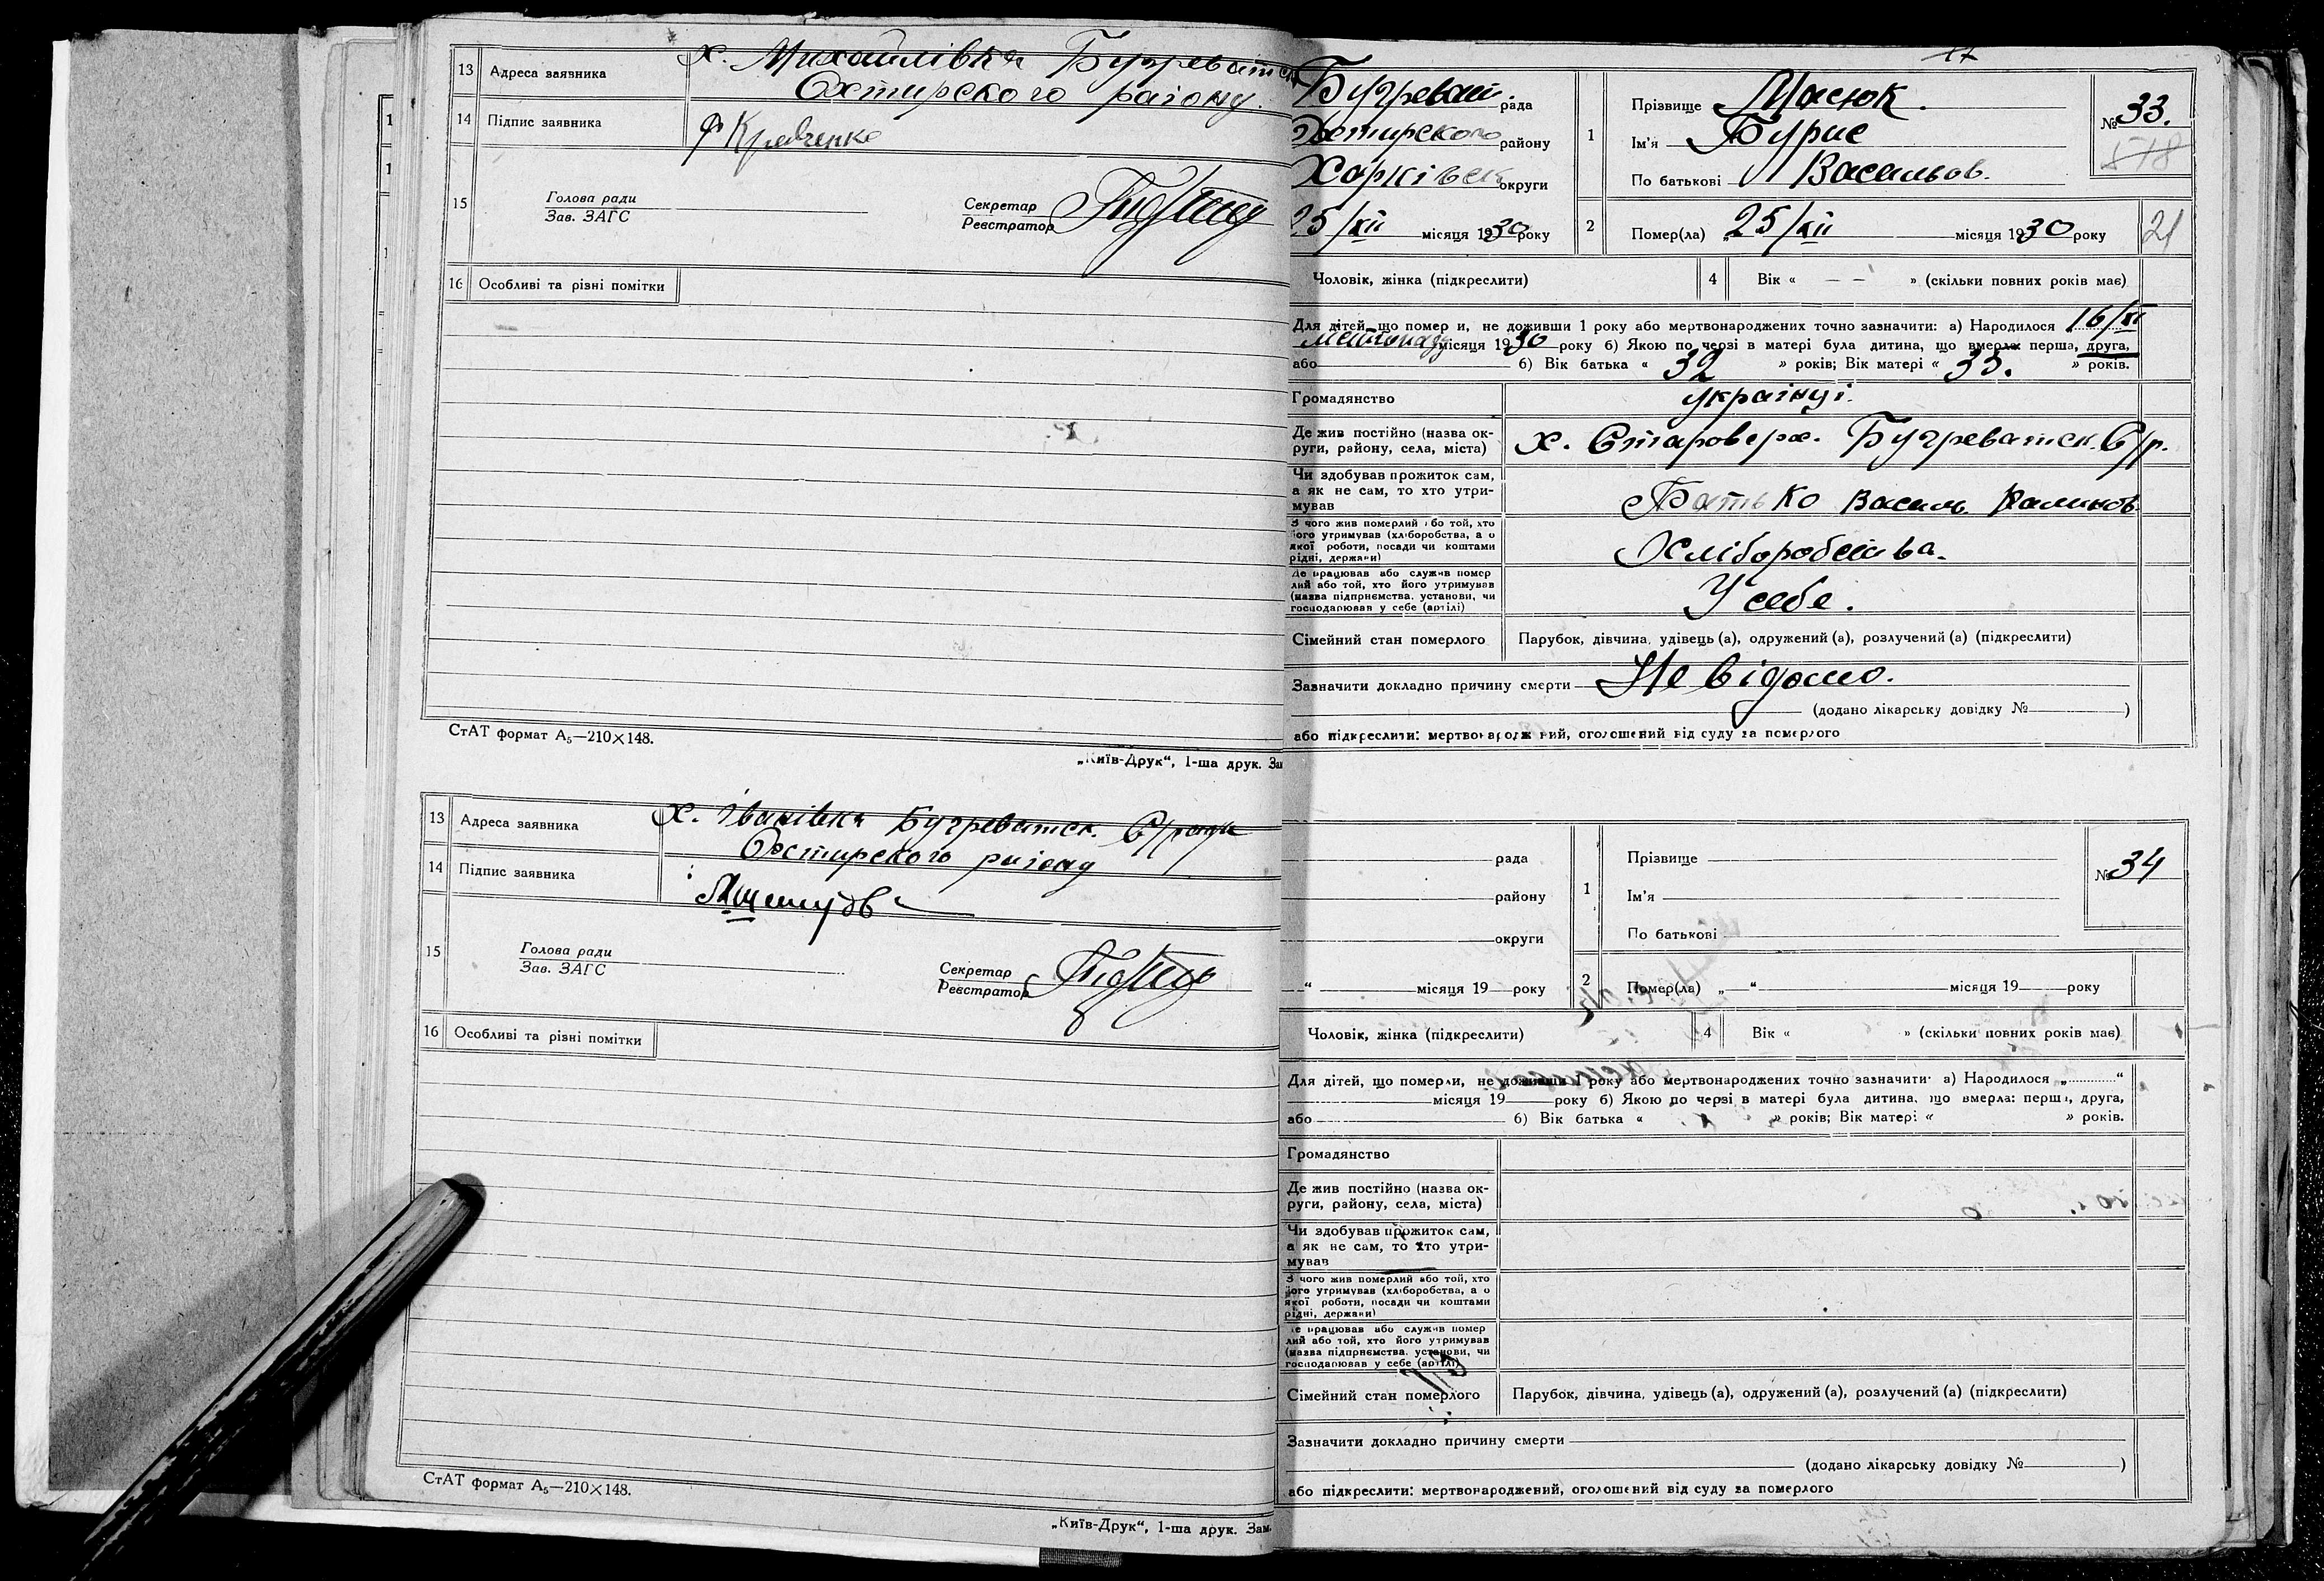 13 Адреса заявника х. Михайлівка Бугреватськ
Охтирского району.
14 Підпис заявника Ф Кравченко
15 Голова ради
Зав. ЗАГС
Секретар
Реєстратор
16 Особливі та різні помітки
СтАТ формат А₅—210×148.
„Київ-Друк“, 1-ша друк. За
13 Адреса заявника х. Іванівка Бугреватск. С/ради
Охтирского району
14 Підпис заявника
15 Голова ради
Зав. ЗАГС
Секретар
Реєстратор
16 Особливі та різні помітки
СтАТ формат А₅—210×148.
„Київ-Друк“, 1-ша друк. Зам.
17
Бугреват. рада
Охтирского району
Харківськ округи
25/XII місяця 1930 року
1 Прізвище Масюк.
Ім'я Бурис
По батькові Васильов.
№ 33.
578
2 Помер(ла) „25/XII місяця 1930 року
21
Чоловік, жінка (підкреслити) 4 Вік « — — » (скільки повних років має)
Для дітей, що померли, не доживши 1 року або мертвонароджених точно зазначити: а) Народилося 16/XI
листопаду місяця 1930 року б) Якою по черзі в матері була дитина, що вмерла: перша, друга,
або б) Вік батька « 32 » років; Вік матері « 33. » років.
Громадянство українці.
Де жив постійно (назва ок-
руги, району, села, міста) х. Старовєрх. Бугреватск. С/р.
Чи здобував прожиток сам,
а як не сам, то хто утри-
мував Батько Василь Калинов
З чого жив померлий або той, хто
його утримував (хліборобства, а о
якої роботи, посади чи коштами
рідні, держави) Хліборобства.
Де працював або служив помер
лий або той, хто його утримував
(назва підприємства, установи, чи
господарював у себе (артілі) У себе.
Сімейний стан померлого Парубок, дівчина, удівець (а), одружений (а), розлучений (а) (підкреслити)
Зазначити докладно причину смерти Не відомо.
(додано лікарську довідку № )
або підкреслити: мертвонароджений, оголошений від суду за померлого
рада
району
округи
“ місяця 19 року
1 Прізвище
Ім'я
По батькові
№ 34
2 Помер(ла) „ “ місяця 19 року
Чоловік, жінка (підкреслити) 4 Вік « » (скільки повних років має)
Для дітей, що померли, не доживши 1 року або мертвонароджених точно зазначити: а) Народилося „ “
місяця 19 року б) Якою по черзі в матері була дитина, що вмерла: перша, друга,
або б) Вік батька « » років; Вік матері « » років.
Громадянство
Де жив постійно (назва ок-
руги, району, села, міста)
Чи здобував прожиток сам,
а як не сам, то хто утри-
мував
З чого жив померлий або той, хто
його утримував (хліборобства, а о
якої роботи, посади чи коштами
рідні, держави)
Де працював або служив помер
лий або той, хто його утримував
(назва підприємства, установи, чи
господарював у себе (артілі)
Сімейний стан померлого Парубок, дівчина, удівець (а), одружений (а), розлучений (а) (підкреслити)
Зазначити докладно причину смерти
(додано лікарську довідку № )
або підкреслити: мертвонароджений, оголошений від суду за померлого